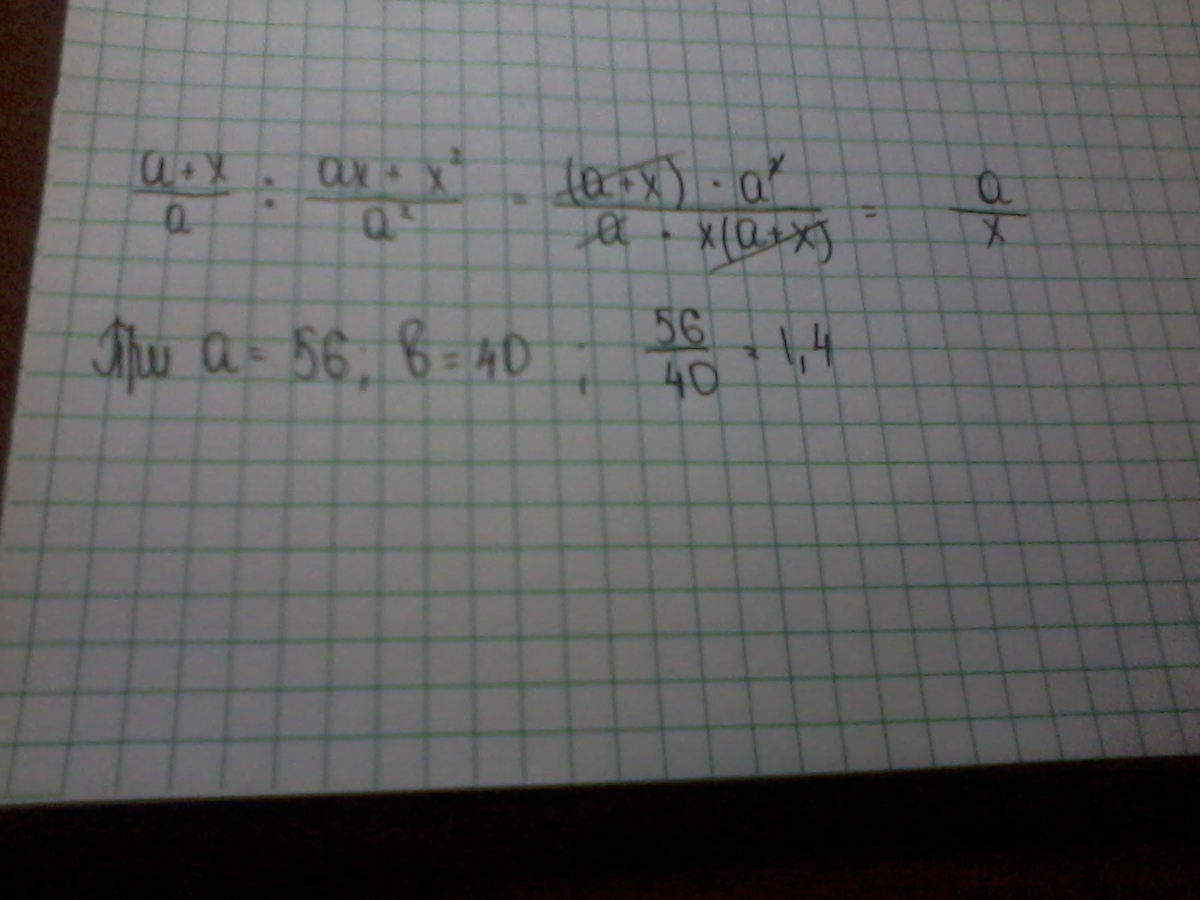 a+x/a : ax+x²/a² = (a+x)·a²/a·x(a+x) = a/x
При a = 56; в = 40 ; 56/40 = 1,4